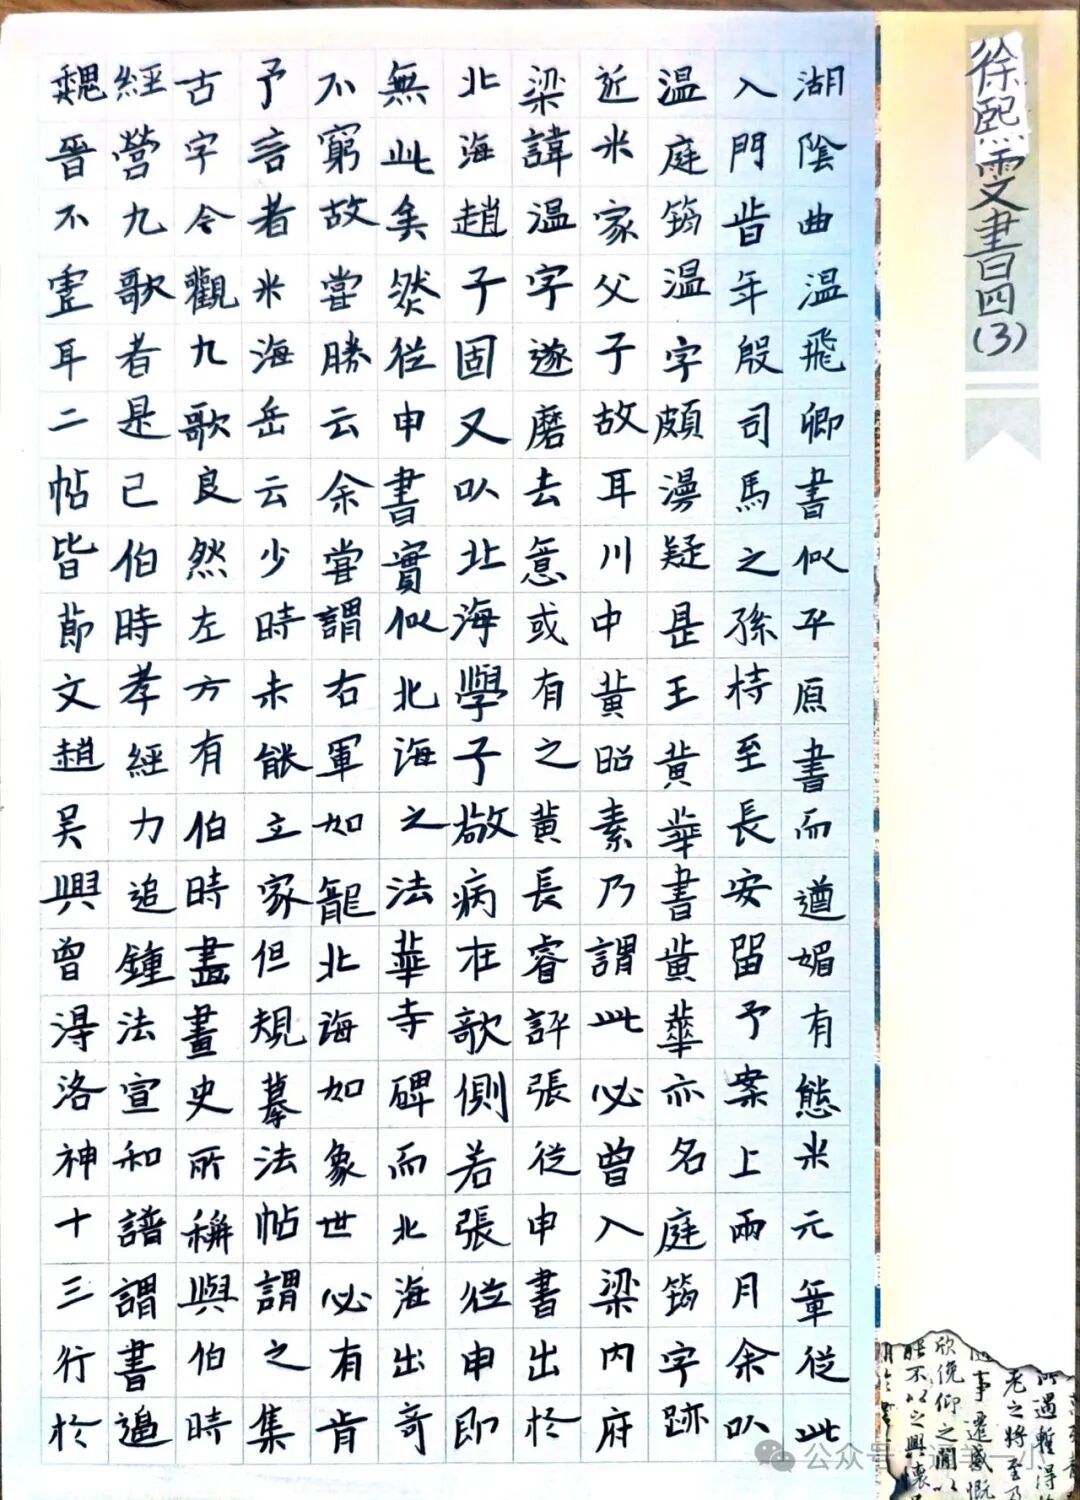 徐熙雯書四(3)
湖陰曲温飛卿書似平原書而遒媚有態米元章從此
入門昔年殷司馬之孫持至長安留予案上兩月余以
温庭筠温字頗漫疑是王黄華書黄華亦名庭筠字跡
近米家父子故耳川中黄昭素乃謂此必曾入梁内府
梁諱温字遂磨去意或有之黄長睿評張從申書出於
北海趙子固又以北海學子敬病在欹側若張從申即
無此矣然從申書實似北海之法華寺碑而北海出奇
不窮故嘗勝云余嘗謂右軍如龍北海如象世必有肯
予言者米海岳云少時未能立家但規摹法帖謂之集
古字令觀九歌良然左方有伯時畫畫史所稱與伯時
經營九歌者是已伯時孝經力追鍾法宣和譜謂書逼
魏晉不虛耳二帖皆節文趙吴興曾得洛神十三行於
公众号